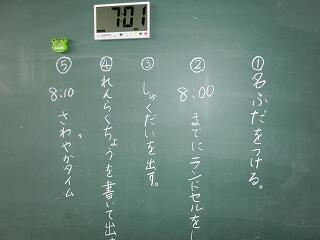 7:01
①名ふだをつける。
②8:00までにランドセルをし
③しゅくだいを出す。
④れんらくちょうを書いて出す
⑤8:10さわやかタイム